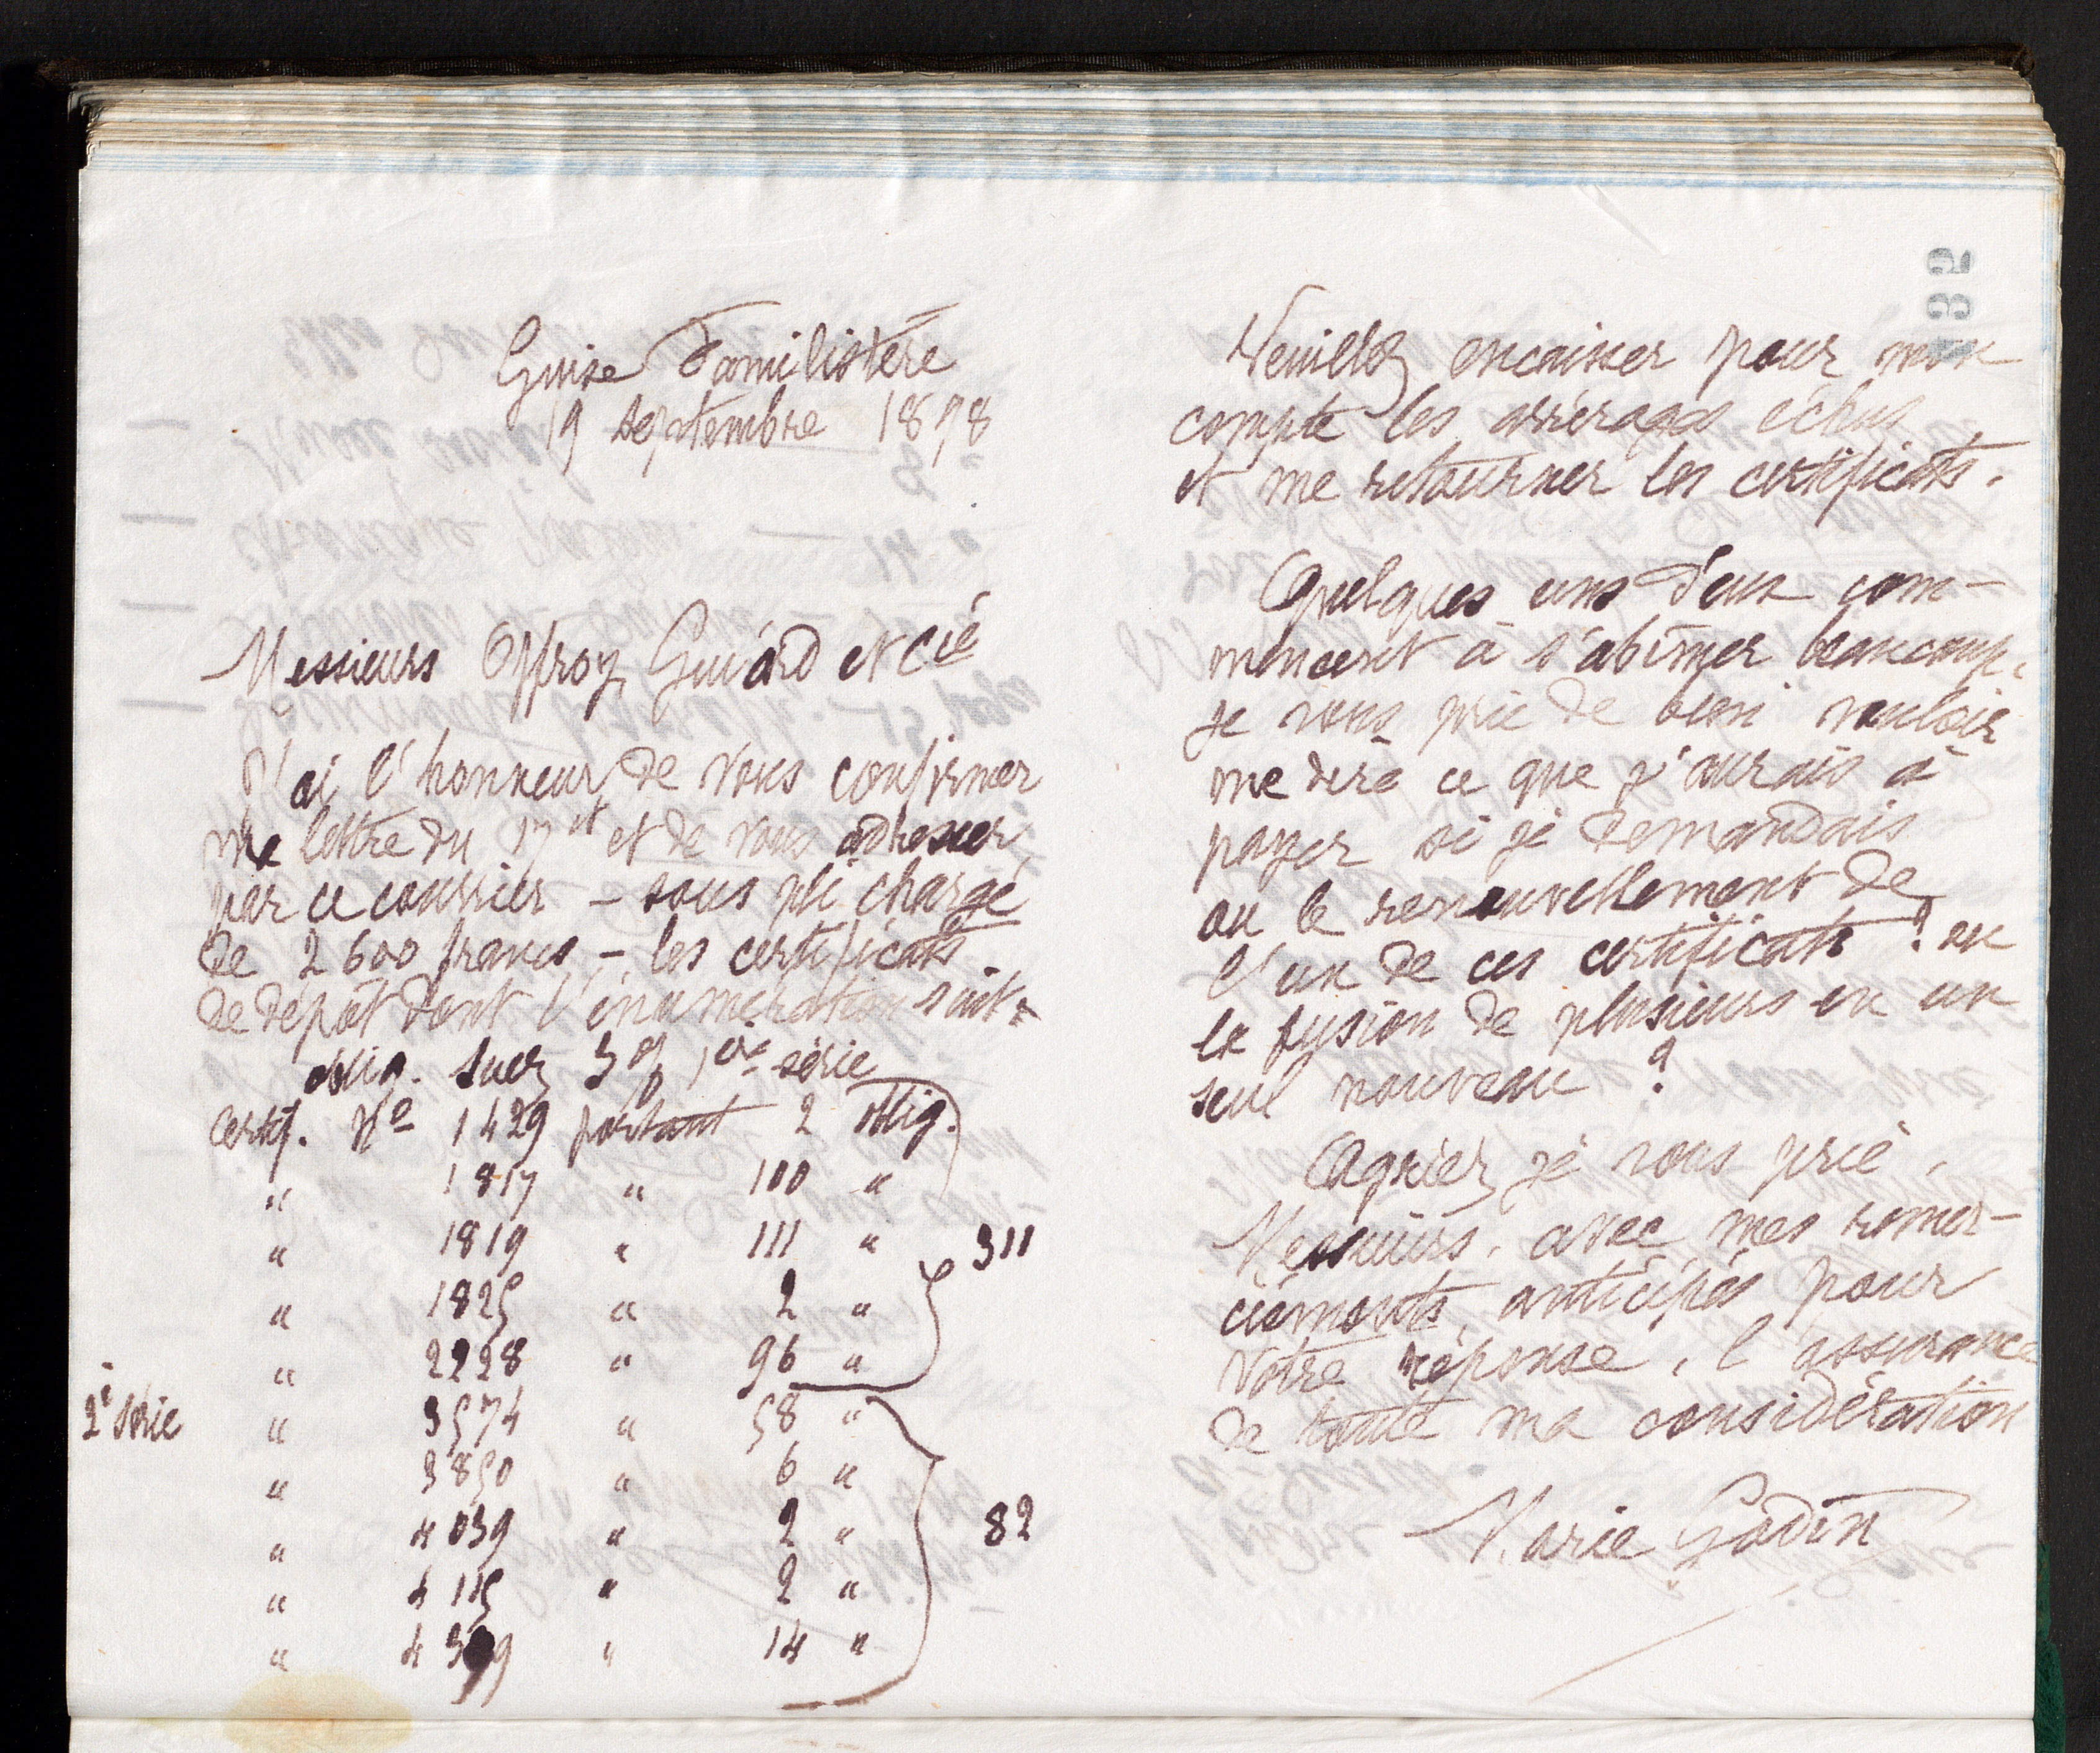 Guise Familistère
19 septembre 1898
Messieurs Offroy, Guiard et Cie
J'ai l'honneur de vous confirmer
ma lettre du 17 et et de vous adresser,
par ce courrier - sous pli chargé
de 2600 francs - les certificats
de dépôt dont l'énumération suit :
oblig. Suez 3% 1ère série
Certif. No 1429 portant 2 oblig.
" 1817 " 100 "
" 1819 " 111 " 311
" 1825 " 2 "
" 2228 " 96 "
2e série " 3574 " 58 "
" 3850 " 6 "
" 4039 " 2 " 82
" 4115 " 2 "
" " 14 "
335
Veuillez encaisser pour mon
compte les arrérages échus
et me retourner les certificats.
Quelques uns d'eux com-
mencent à s'abîmer beaucoup,
je vous prie de bien vouloir
me dire ce que j'aurais à
payer si je demandais
ou le renouvellement de
l'un de ces certificats ? ou
la fusion de plusieurs en un
seul nouveau ?
Agréez, je vous prie,
Messieurs, avec mes remer-
ciements anticipés pour
votre réponse, l'assurance
de toute ma considération
Marie Godin